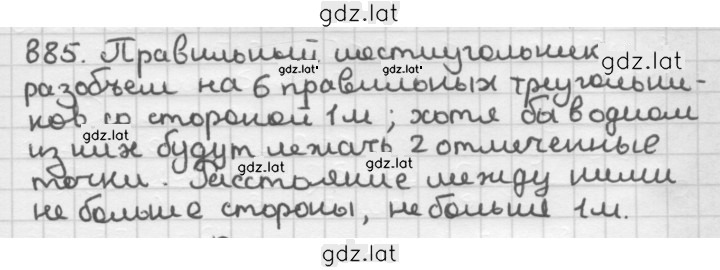 gdz.lat
885. Правильный шестиугольник
gdz.lat gdz.lat
разобъем на 6 правильных треугольни-
ков со стороной 1 м; хотя бы в одном
gdz.lat gdz.lat
из них будут лежать 2 отмеченные
gdz.lat gdz.lat
точки. Расстояние между ними
не больше стороны, не больше 1 м.
gdz.lat